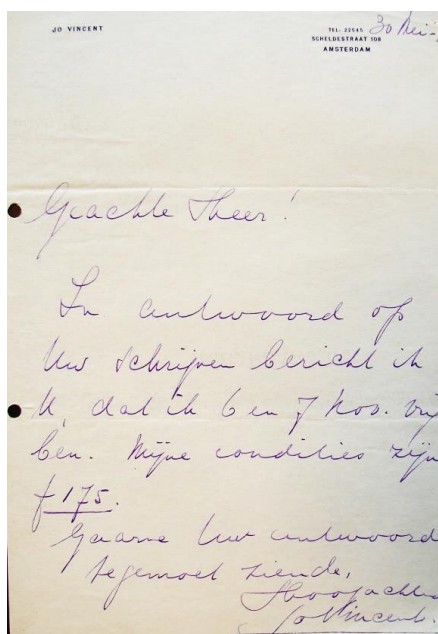 JO VINCENT
TEL. 22545
SCHELDESTRAAT 108
AMSTERDAM
30 Mei
Geachte Heer!
In antwoord op
Uw schrijven bericht ik
U, dat ik 6 en 7 Nov. vrij
ben. Mijne condities zijn
f 175.
Gaarne Uw antwoord
tegemoet ziende,
Hoogachtend
Jo Vincent.